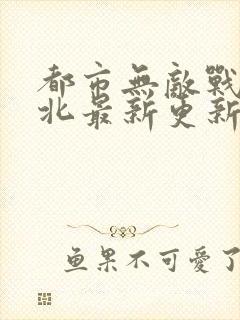 都市無敵戰
北最新更新
鱼果不可愛了